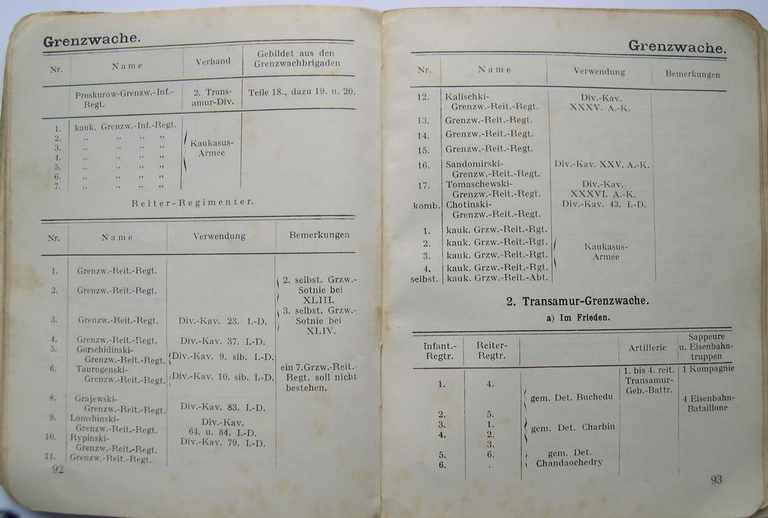 Grenzwache.
Nr. Name Verband Gebildet aus den Grenzwachbrigaden
Proskurow-Grenzw.-Inf.- 2. Trans- Teile 18., dazu 19. u. 20.
Regt. amur-Div.
1. kauk. Grenzw.-Inf.-Regt.
2. „ „ „ „
3. „ „ „ „ Kaukasus-
4. „ „ „ „ Armee
5. „ „ „ „
6. „ „ „ „
7. „ „ „ „
Reiter-Regimenter.
Nr. Name Verwendung Bemerkungen
1. Grenzw.-Reit.-Regt.
2. selbst. Grzw.-
2. Grenzw.-Reit.-Regt. Sotnie bei
XLIII.
3. selbst. Grzw.-
3. Grenzw.-Reit.-Regt. Div.-Kav. 23. I.-D. Sotnie bei
XLIV.
4. Grenzw.-Reit.-Regt. Div.-Kav. 37. I.-D.
5. Gorschidinski-
Grenzw.-Reit.-Regt. Div.-Kav. 9. sib. I.-D.
6. Taurogenski- ein 7.Grzw.-Reit.-
Grenzw.-Reit.-Regt. Div.-Kav. 10. sib. I.-D. Regt. soll nicht
bestehen.
8. Grajewski-
Grenzw.-Reit.-Regt. Div.-Kav. 83. I.-D.
9. Lomshinski- Div.-Kav.
Grenzw.-Reit.-Regt. 64. u. 84. I.-D.
10. Rypinski- Div.-Kav. 79. I.-D.
Grenzw.-Reit.-Regt.
11. Grenzw.-Reit.-Regt.
92
Grenzwache.
Nr. Name Verwendung Bemerkungen
12. Kalischki- Div.-Kav.
Grenzw.-Reit.-Regt. XXXV. A.-K.
13. Grenzw.-Reit.-Regt.
14. Grenzw.-Reit.-Regt.
15. Grenzw.-Reit.-Regt.
16. Sandomirski- Div.-Kav. XXV. A.-K.
Grenzw.-Reit.-Regt.
17. Tomaschewski- Div.-Kav.
Grenzw.-Reit.-Regt. XXXVI. A.-K.
komb. Chotinski- Div.-Kav. 43. I.-D.
Grenzw.-Reit.-Regt.
1. kauk. Grzw.-Reit.-Rgt.
2. kauk. Grzw.-Reit.-Rgt. Kaukasus-
3. kauk. Grzw.-Reit.-Rgt. Armee
4. kauk. Grzw.-Reit.-Rgt.
selbst. kauk. Grzw.-Reit.-Abt.
2. Transamur-Grenzwache.
a) Im Frieden.
Infant.- Regtr. Reiter- Regtr. Artillerie Sappeure u. Eisenbahn- truppen
1. bis 4. reit. 1 Kompagnie
1. 4. Transamur-
Geb.-Battr.
gem. Det. Buchedu 4 Eisenbahn-
2. 5. Bataillone
3. 1. gem. Det. Charbin
4. 2.
3.
5. 6. gem. Det.
6. . Chandaochedry
93